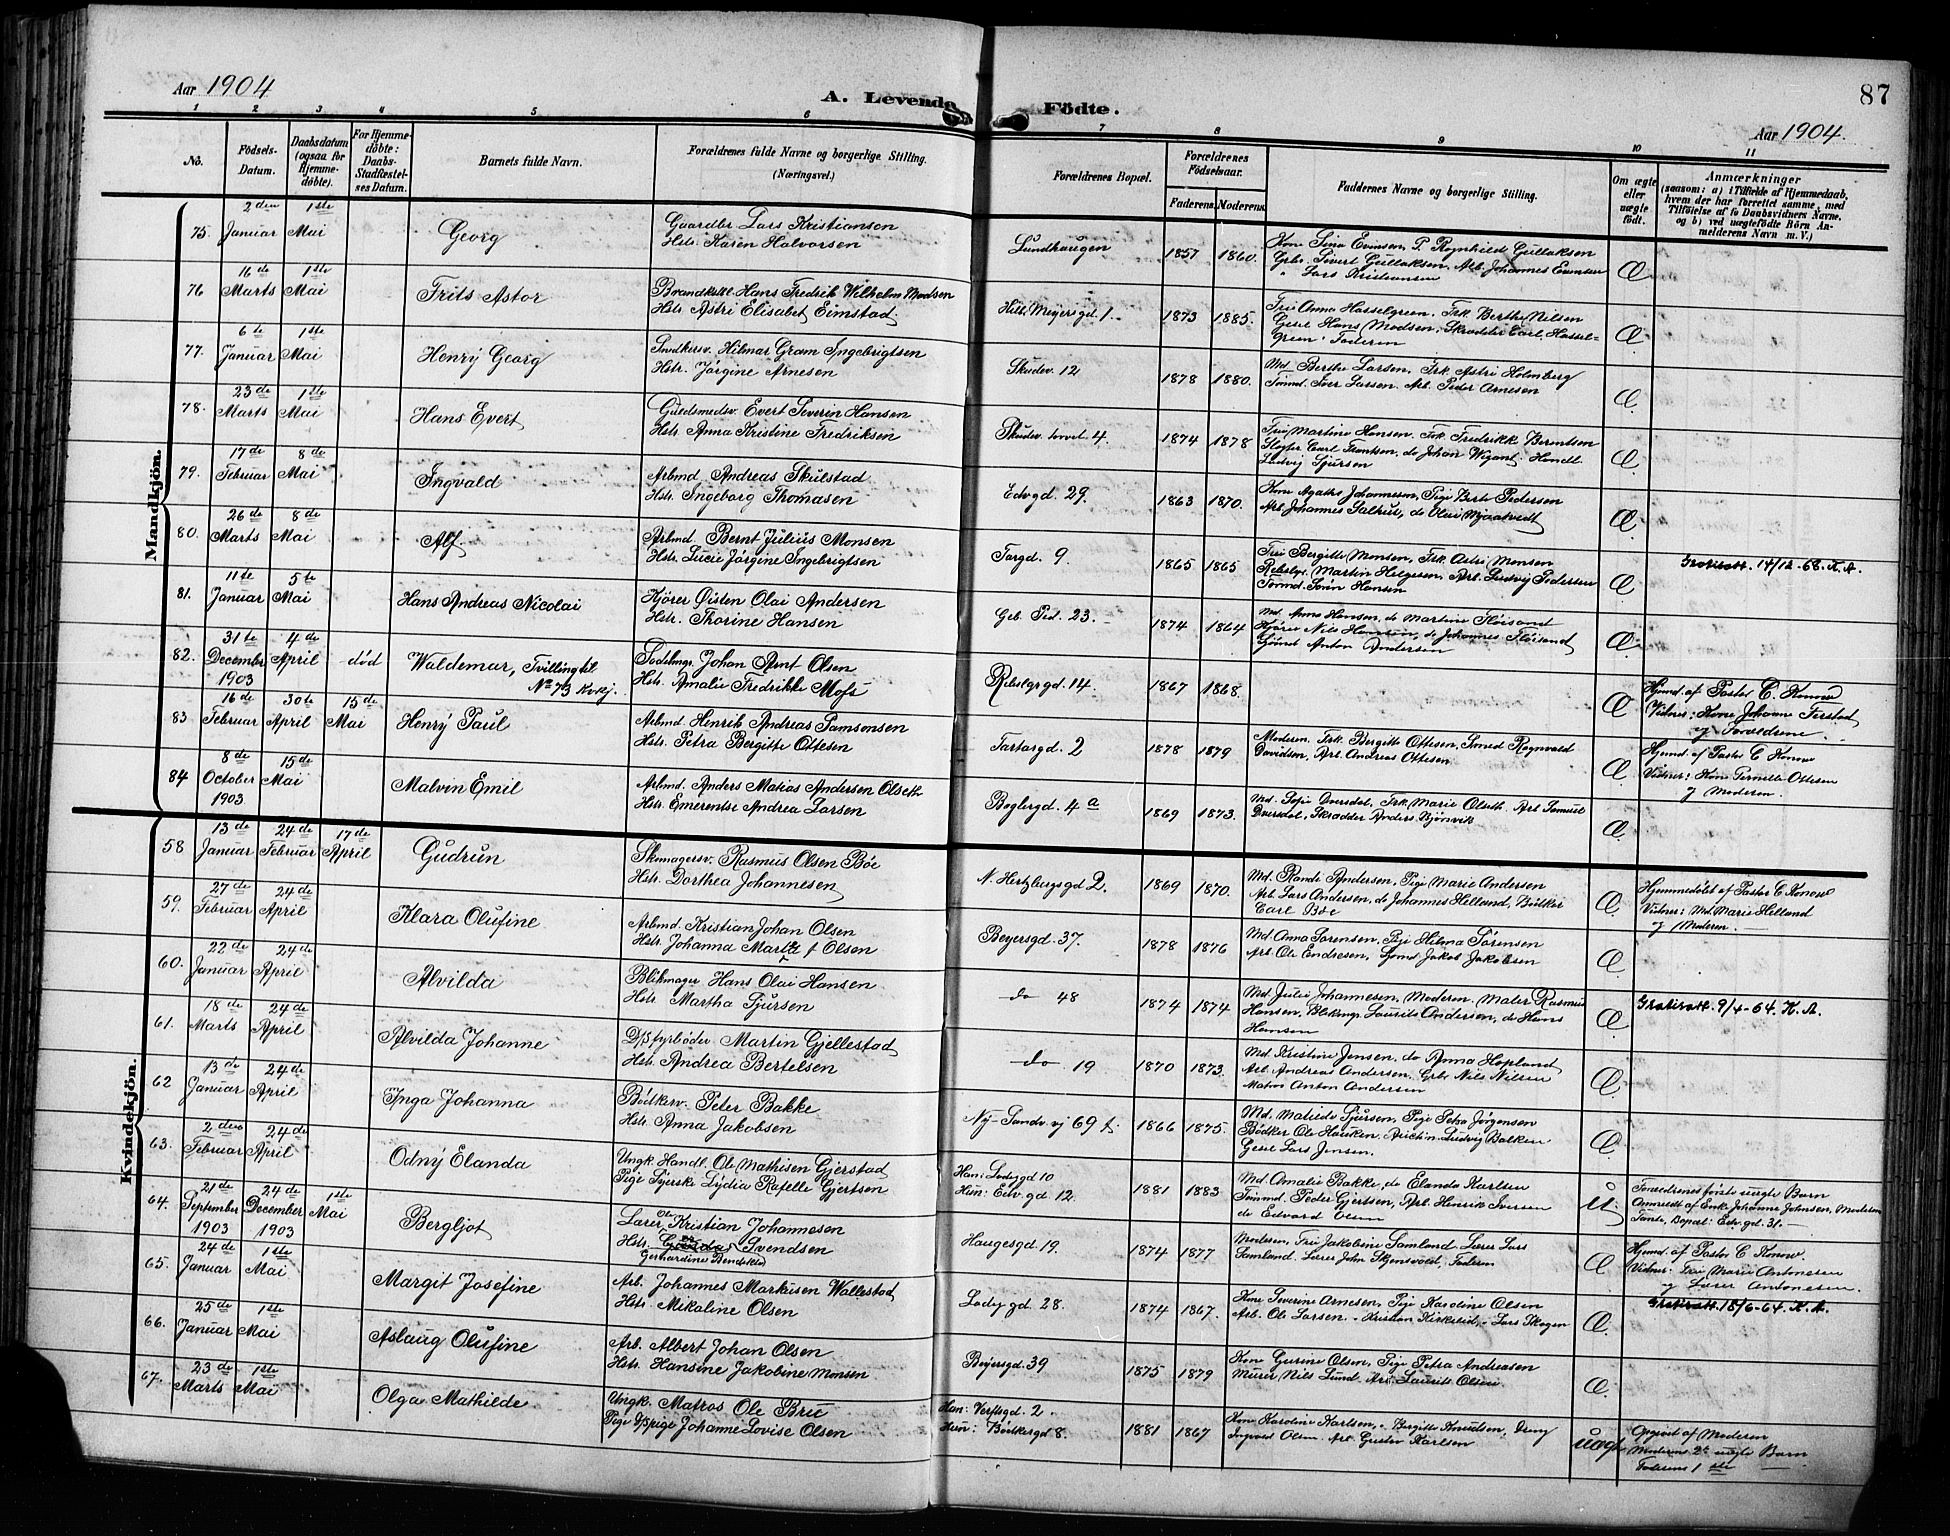 Aar 1904
A. Levende Födte.
87
Aar 1904.
1 2 3 4 5 6 7 8 9 10 11
No.
Födsels-Datum.
Daabsdatum (ogsaa for Hjemmedöbte).
For Hjemmedöbte: Daabs-Stadfæstelses Datum.
Barnets fulde Navn.
Forældrenes fulde Navne og borgerlige Stilling. (Næringsvei.)
Forældrenes Bopæl.
Forældrenes Födselsaar.
Faderens. Moderens.
Faddernes Navne og borgerlige Stilling.
Om ægte eller uægte födt.
Anmærkninger
(saasom: a) i Tilfælde af Hjemmedaab, hvem der har forrettet samme, med Tilföielse af to Daabsvidners Navne. og b) ved uægtefödte Börn Anmelderens Navn m. V.)
Mandkjön.
75. 2den Januar 1ste Mai Georg
Gaardbr Lars Kristiansen
Hstr. Karen Halvorsen
Lundhaugen 1857 1860.
Kone Sina Evensen, P. Ragnhild Gullaksen
Grbr. Sivert Gullaksen, Arb. Johannes Evensen
" Lars Kristiansen
Æ
76 16de Marts 1ste Mai Frits Astor
Brandkstbl. Hans Fredrik Wilhelm Madsen
Hstr. Astri Elisabet Eimstad
Hilb. Meyersgd. 1. 1873 1885.
Fru Anna Hasselgreen, Frk. Berthe Nilsen
Gesel Hans Madsen, Skrædder Carl Hasselgreen, Faderen
Æ
77. 6te Januar 1ste Mai Henrÿ Georg
Snedkersv. Hilmar Gram Ingebrigtsen
Hstr. Jørgine Arnesen
Skudev. 12 1878 1880.
Md. Berthe Larsen, Frk. Astri Holmberg
Tømmd. Iver Larsen, Arb. Peder Arnesen
Æ.
78. 23de Marts 1ste Mai Hans Evert
Guldsmedsv. Evert Severin Hansen
Hstr. Anna Kristine Fredriksen
Skudev. torvet 4. 1874 1878
Fru Martine Hansen, Frk. Fredrikke Berentsen
Sløifer Carl Frantsen, do Johan Wigant, Handl.
Ludvig Sjursen
Æ.
79. 17de Februar 8de Mai Ingvald
Arbmd Andreas Skulstad
Hstr. Ingeborg Thomasen
Edvgd. 29. 1863 1870.
Kone Agathe Johannesen, Pige Berte Pedersen
Arb. Johannes Saltrus, do Olai Mjaatvedt
Æ
80. 26de Marts 8de Mai Alf
Arbmd Bernt Julius Monsen
Hstr. Lucie Jørgine Ingebrigtsen
Targd. 9. 1865 1865
Fru Bergitte Monsen, Frk. Astri Monsen
Rebslgr. Martin Helgesen, Arb. Ludvig Pedersen
Tømmd. Sørin Hansen
Æ
Gratisatt. 14/12-68. K. A.
81. 11te Januar 5te Mai Hans Andreas Nicolai
Kjører Østen Olai Andersen
Hstr. Thorine Hansen
Geb. Ped. 23. 1874 1864
Md. Anna Hansen, do Martine Fløisand
Kjører Nils Hansen, do Johannes Fløisand
Sjømd Anton Andersen
Æ.
82. 31te December 1903 4de April død Waldemar, Tvilling til No 73 Kvkj.
Johan Arnt Olsen
Hstr. Amalie Fredrikke Mohs
Rebslgrgd. 14. 1867 1868.
Æ
Hjemmd. af Pastor C. Konow
Vidner: Kone Johanne Ferstad
og Forældrene.
83 16de Februar 30te April 15de Mai Henrÿ Paul
Arbmd. Henrik Andreas Samsonsen
Hstr. Petra Bergitte Ottesen
Tartargd. 2 1878 1879
Moderen, Frk. Bergitte Ottesen, Smed Regnvald
Davidsen, Arb. Andreas Ottesen
Æ
Hjemmd. af Pastor C Konow
Vidner: Kone Pernelle Ottesen
og Moderen.
84 8de October 1903 15de Mai Malvin Emil
Arbmd. Anders Matias Andersen Olseth
Hstr. Emerentse Andrea Larsen
Boglergd. 4a 1869 1873.
Md. Sofie Dversdal, Frk. Marie Olseth, Arb Samuel
Dversdal, Skrædder Anders Bjønvik
Æ.
Kvindekjön.
58 13de Januar 24de Februar 17de April Gudrun
Skomagersv. Rasmus Olsen Böe
Hstr. Dorthea Johannesen
N. Hertzbergsgd 2. 1869 1870.
Md. Rande Andersen, Pige Marie Andersen
Arb. Lars Andersen, do Johannes Helland, Bødker
Carl Böe
Æ
Hjemmedøbt af Pastor C. Konow
Vidner: Md. Marie Helland
og Moderen.
59. 27de Februar 24de April Klara Olufine
Arbmd. Kristian Johan Olsen
Hstr. Johanna Martha Olsen
Beyersgd. 37. 1878 1876
Md. Anna Sørensen, Pige Hilma Sørensen
Arb. Ole Endresen, Sjømd Jakob Jakobsen
Æ.
60. 22de Januar 24de April Alvilda
Blikmager Hans Olai Hansen
Hstr. Martha Sjursen
do 48 1874 1874
Md. Julie Johannesen, Moderen, Maler Rasmus
Hansen, Blikmgr Laurits Andersen, do Hans
Hansen
Æ
Gratisatt. 9/4-64. K. A.
61. 18de Marts 24de April Alvilda Johanne
D/Sfyrbøder Martin Gjellestad
Hstr. Andrea Bertelsen
do 19 1870 1873.
Md. Kristine Jensen, do Anna Hopland
Arb. Andreas Andersen, Grbr. Nils Nilsen
Matros Anton Andersen
Æ
62 13de Januar 24de April Inga Johanna
Bødkersv. Peter Bakke
Hstr. Anna Jakobsen
Nÿ-Sandv.vj 69 f. 1866 1875.
Md. Matilde Sjursen, Pige Petra Jørgensen
Bødker Ole Hauken, Ludvig Bakken
Gesel Lars Jensen.
Æ
63. 2den Februar 24de April Odnÿ Elanda
Ungk. Handl. Ole Mathisen Gjerstad
Pige Syerske Lÿdia Rafelle Gjertsen
Han: Ladegd 10
Hun: Edv. gd 12. 1881 1883
Md. Amalie Bakke, do Elanda Karlsen
Tømmd. Peder Gjertsen, Arb. Henrik Iversen
do Edvard Olsen
U.
Forældrenes første uægte Barn
Anmeldt af Enke Johanne Johnsen, Moderens
Tante, Bopæl: Edv. gd. 31.
64. 21de September 1903 24de December 1903 1ste Mai Bergljot
Lærer Ole Kristian Johannesen
Hstr. Svendsen
Gerhardine Bendikte
Haugesgd. 19. 1874 1877
Moderen, Fru Jakobine Samland, Lærer Lars
Samland, Lærer John Skjensvold, Faderen
Æ
Hjemmd. af Pastor C Konow.
Vidner: Fru Marie Antonesen
og Lærer Antonesen.
65. 24de Januar 1ste Mai Margit Josefine
Arb. Johannes Markusen Wallestad
Hstr. Mikaline Olsen
Lade gd 28. 1874 1867
Kone Severine Arnesen, Pige Karoline Olsen
Arb. Ole Larsen, " Kristian Kirkelid, " Lars Skogen
Æ.
Gratisatt. 18/6-64. K. A.
66. 25de Januar 1ste Mai Aslaug Olufine
Arb. Albert Johan Olsen
Hstr. Hansine Jakobine Monsen
Beyersgd. 39 1875 1879
Kone Gurine Olsen, Pige Petra Andreasen
Murer Nils Lund, Arb. Laurits Olsen
Æ.
67. 23de Marts 1ste Mai Olga Mathilde
Ungk. Matros Ole Brie
Pige D/Spige Johanne Lovise Olsen
Han: Verftsgd. 2.
Hun: Bødkergd 8. 1881 1867
Kone Karoline Karlsen, " Bergitte Knudsen, Dreng
Ingvald Olsen, Arb. Gustav Karlsen
uægte
Opgivet af Moderen
Moderens 2det uægte Barn
Faderens 1ste